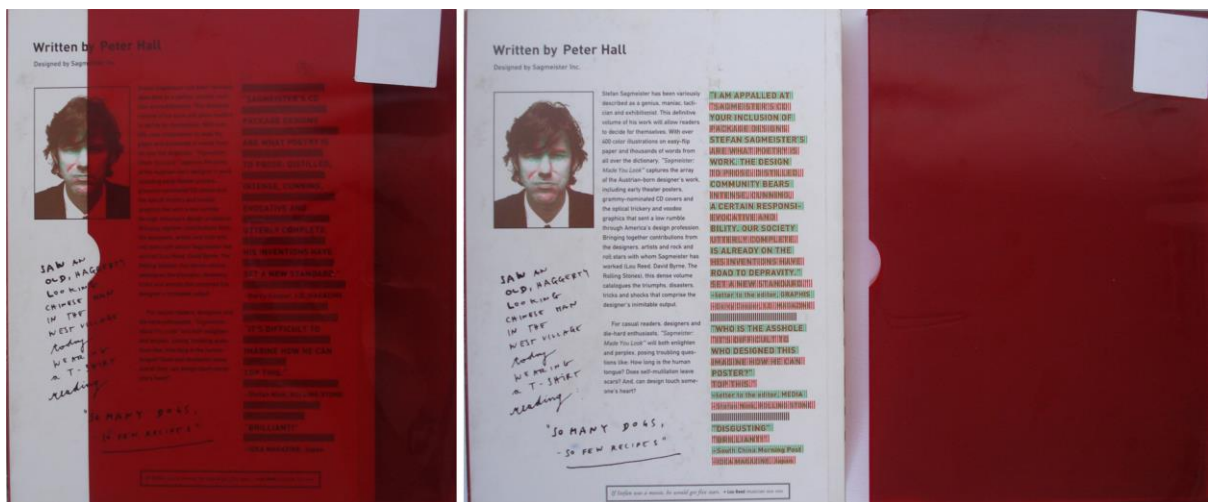 Written by Peter Hall
Designed by Sagmeister Inc.
"SAGMEISTER'S CD
PACKAGE DESIGNS
ARE WHAT POETRY IS
TO PROSE: DISTILLED,
INTENSE, CUNNING,
EVOCATIVE AND
UTTERLY COMPLETE.
HIS INVENTIONS HAVE
SET A NEW STANDARD."
"IT'S DIFFICULT TO
IMAGINE HOW HE CAN
TOP THIS."
"BRILLIANT!"
–IDEA MAGAZINE, Japan
SAW AN
OLD, HAGGERTY
LOOKING
CHINESE MAN
IN THE
WEST VILLAGE
today
WEARING
a T-SHIRT
reading
"SO MANY DOGS,
SO FEW RECIPES"
Written by Peter Hall
Designed by Sagmeister Inc.
Stefan Sagmeister has been variously
described as a genius, maniac, tech-
cian and exhibitionist. This definitive
volume of his work will allow readers
to decide for themselves. With over
600 color illustrations on easy-flip
paper and thousands of words from
all over the dictionary, "Sagmeister:
Made You Look" captures the array
of the Austrian-born designer's work,
including early theater posters,
grammy-nominated CD covers and
the optical trickery and voodoo
graphics that sent a low rumble
through America's design profession.
Bringing together contributions from
the designers, artists and rock and
roll stars with whom Sagmeister has
worked (Lou Reed, David Byrne, The
Rolling Stones), this dense volume
catalogues the triumphs, disasters,
tricks and shocks that comprise the
designer's inimitable output.
For casual readers, designers and
die-hard enthusiasts, "Sagmeister:
Made You Look" will both enlighten
and perplex, posing troubling ques-
tions like: How long is the human
tongue? Does self-mutilation leave
scars? And, can design touch some-
one's heart?
"I AM APPALLED AT
"SAGMEISTER'S CD
YOUR INCLUSION OF
PACKAGE DESIGNS
STEFAN SAGMEISTER'S
ARE WHAT POETRY IS
WORK. THE DESIGN
TO PROSE: DISTILLED,
COMMUNITY BEARS
INTENSE, CUNNING,
A CERTAIN RESPONSI-
EVOCATIVE AND
BILITY. OUR SOCIETY
UTTERLY COMPLETE.
IS ALREADY ON THE
HIS INVENTIONS HAVE
ROAD TO DEPRAVITY."
SET A NEW STANDARD."
–letter to the editor, GRAPHIS
"WHO IS THE ASSHOLE
"IT'S DIFFICULT TO
WHO DESIGNED THIS
IMAGINE HOW HE CAN
POSTER?"
TOP THIS."
–letter to the editor, MEDIA
"DISGUSTING"
"BRILLIANT!"
–South China Morning Post
–IDEA MAGAZINE, Japan
SAW AN
OLD, HAGGERTY
LOOKING
CHINESE MAN
IN THE
WEST VILLAGE
today
WEARING
a T-SHIRT
reading
"SO MANY DOGS,
–SO FEW RECIPES"